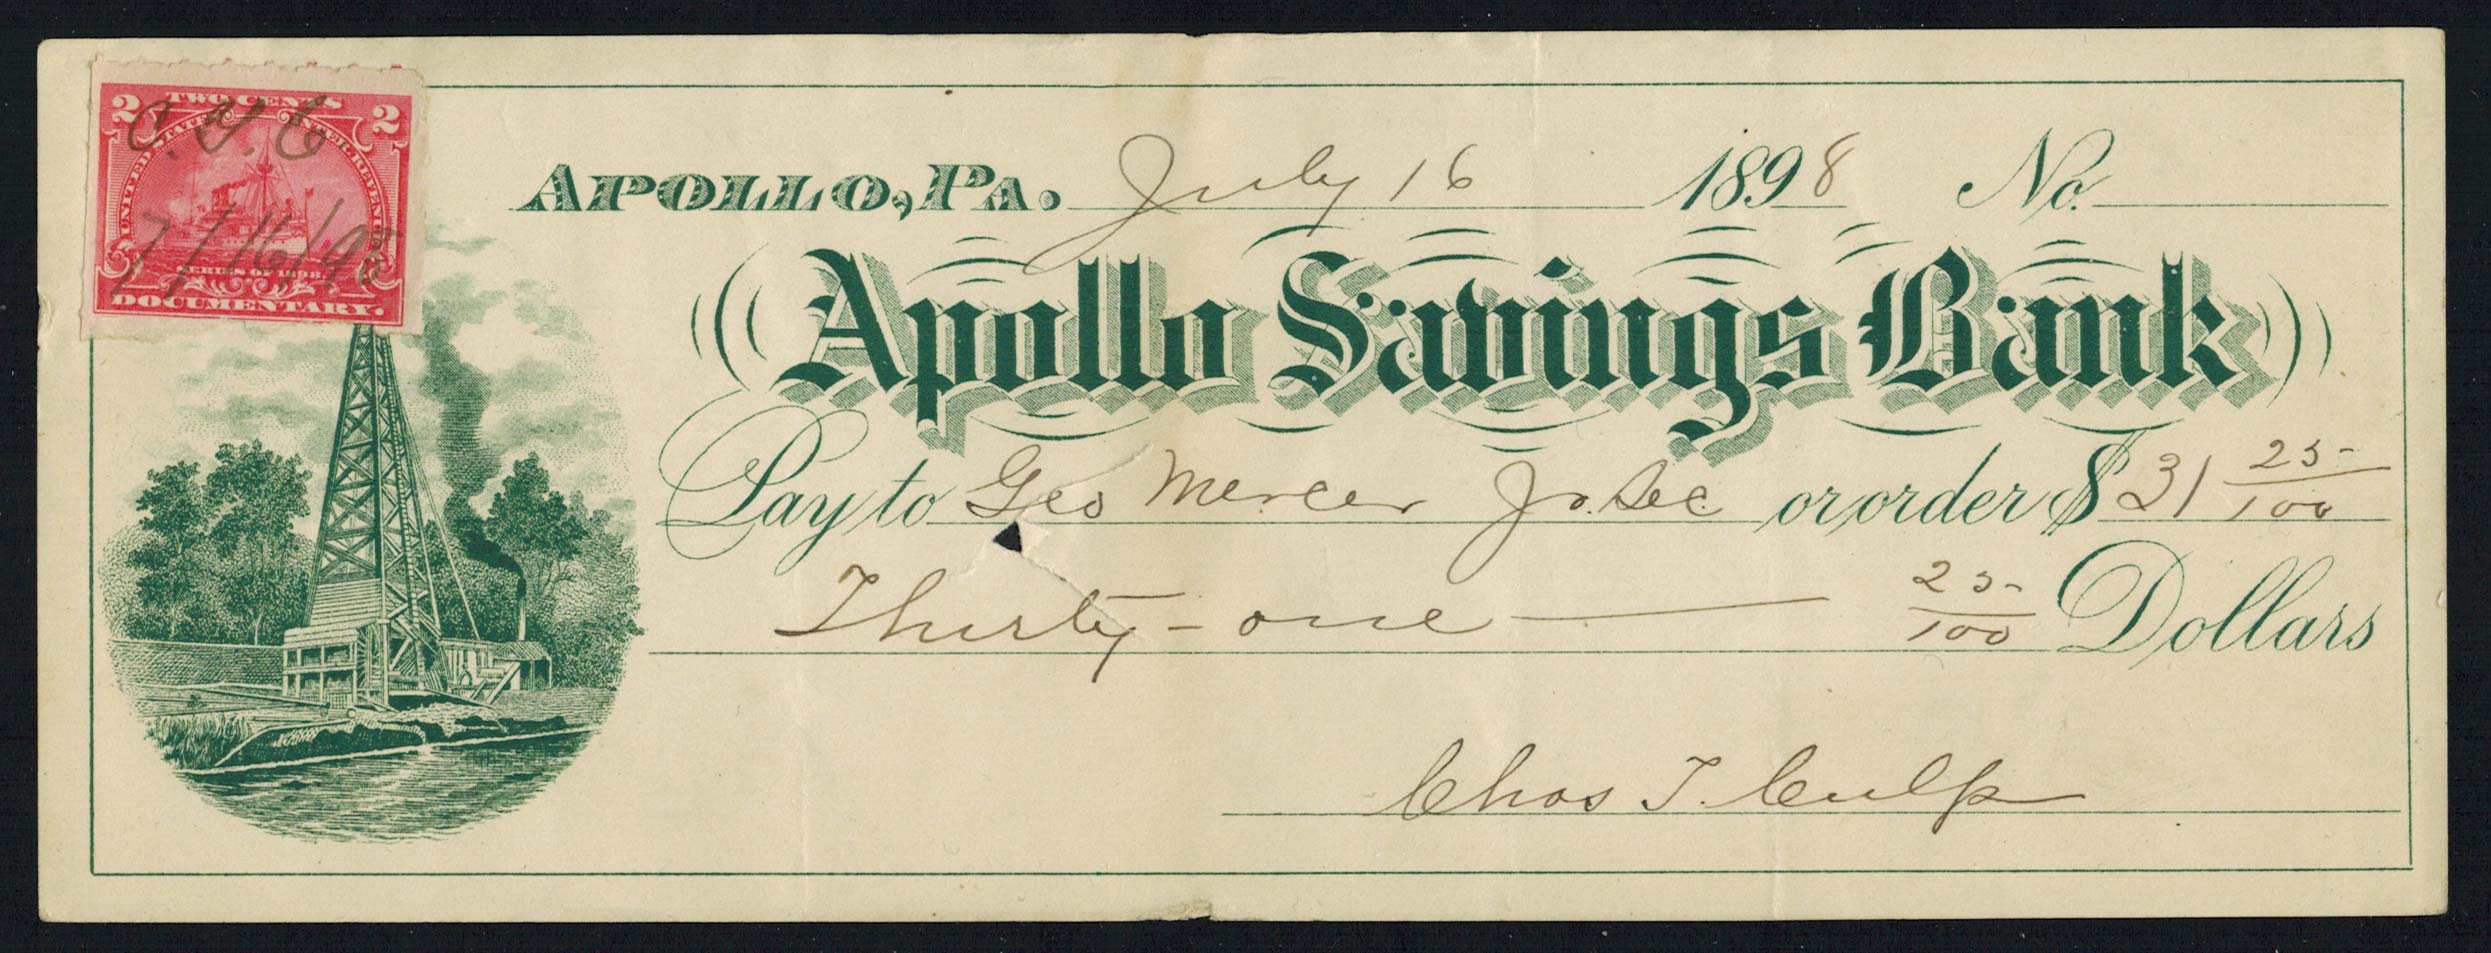 2 TWO CENTS 2
C. T. C
UNITED STATES INTER. REVENUE
7/16/98
SERIES OF 1898.
DOCUMENTARY.
APOLLO, PA. July 16 1898 No.
Apollo Savings Bank
Pay to Geo Mercer Jr. Sec. or order $ 31 25/100
Thirty-one 25/100 Dollars
Chas T. Culp